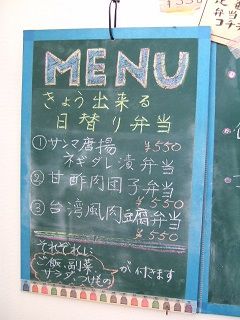 MENU
きょう出来る
日替り弁当
①サンマ唐揚
¥550
ネギダレ漬弁当
②甘酢肉団子弁当
¥550
③台湾風肉豆腐弁当
¥550
それぞれに
ご飯、副菜
サラダ、つけもの
が付きます
¥550
弁当